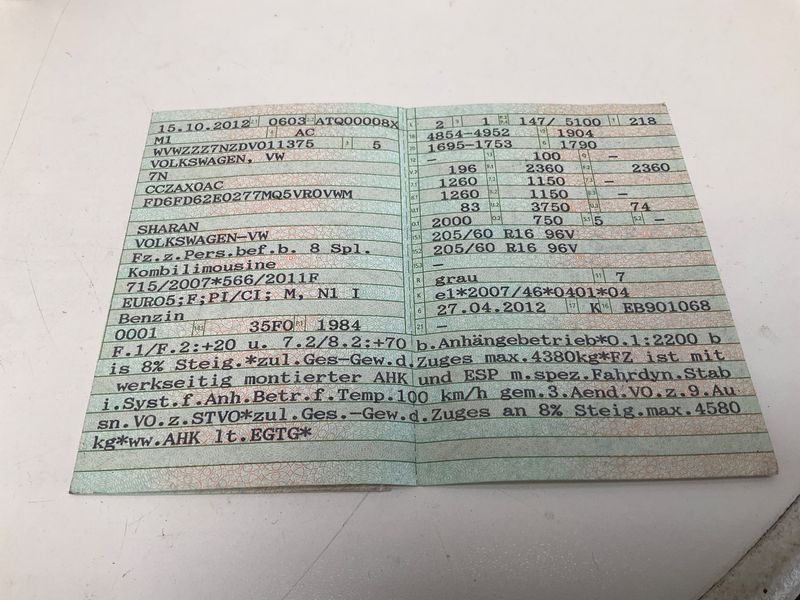 15.10.2012 0603 ATQ00008X
M1 AC
WVWZZZ7NZDV011375 5
VOLKSWAGEN, VW
7N
CCZAX0AC
FD6FD62E0277MQ5VR0VWM
SHARAN
VOLKSWAGEN-VW
Fz.z.Pers.bef.b. 8 Spl.
Kombilimousine
715/2007*566/2011F
EURO5;F;PI/CI; M, N1 I
Benzin
0001 35F0 1984
2 1 147/ 5100 218
4854-4952 1904
1695-1753 1790
- 100 -
196 2360 2360
1260 1150 -
1260 1150 -
83 3750 74
2000 750 5 -
205/60 R16 96V
205/60 R16 96V
-
grau 7
e1*2007/46*0401*04
27.04.2012 K EB901068
-
F.1/F.2:+20 u. 7.2/8.2:+70 b.Anhängebetrieb*O.1:2200 b
is 8% Steig.*zul.Ges-Gew.d.Zuges max.4380kg*FZ ist mit
werkseitig montierter AHK und ESP m.spez.Fahrdyn.Stab
i.Syst.f.Anh.Betr.f.Temp.100 km/h gem.3.Aend.VO.z.9.Au
sn.VO.z.STVO*zul.Ges.-Gew.d.Zuges an 8% Steig.max.4580
kg*ww.AHK lt.EGTG*